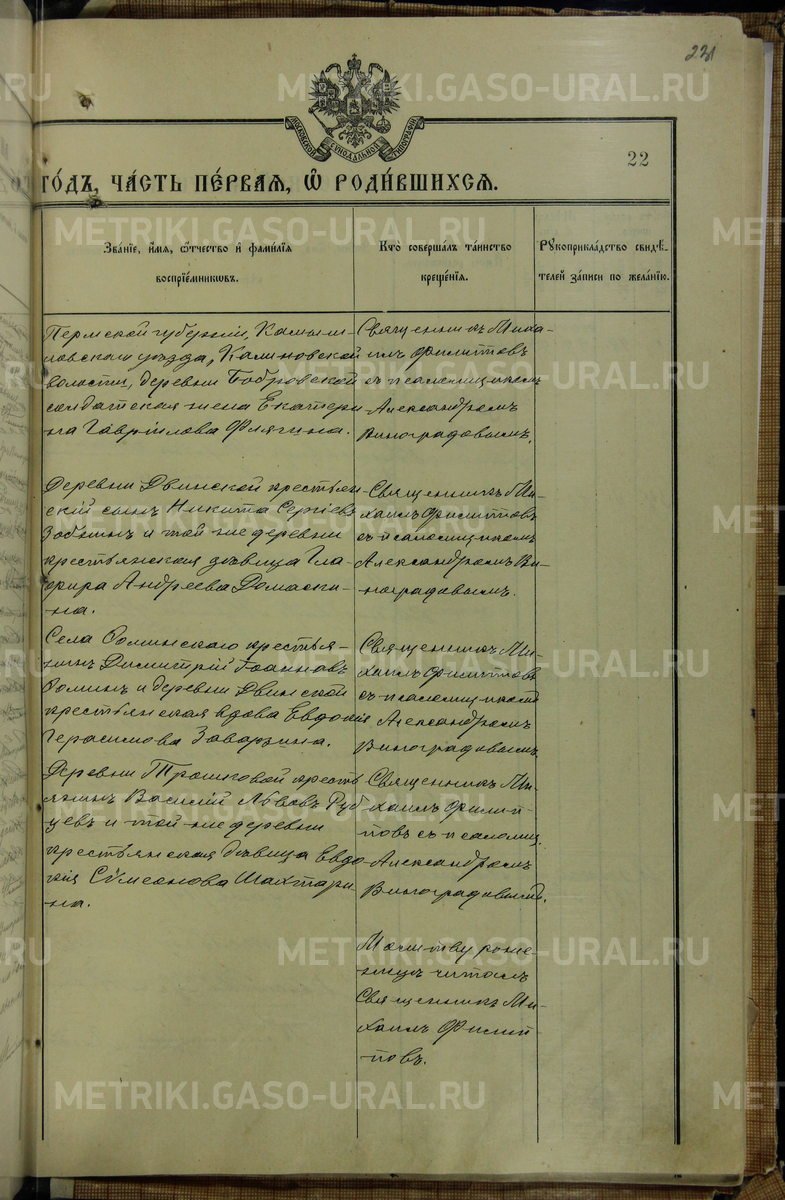 221
22
МОСКОВСКОЙ СѴНОДАЛЬНОЙ ТИПОГРАФІИ
ГО́ДЪ, ЧА́СТЬ ПЕ́РВАЯ, Ѽ РОДИ́ВШИХСЯ.
Зва́нїе, и҆́мя, ѻ҆́тчество и҆ фами́лїя воспрїе́мниковъ.
Кто̀ соверша́лъ та́инство креще́нїя.
Рꙋкоприкла́дство свидѣ́телей за́писи по жела́нїю.
Пермской губерніи, Камыш-
ловскаго уѣзда, Калиновской
волости, деревни Бобровской
солдатская жена Екатери
на Гавріилова Флягина.
Священникъ Миха-
илъ Филиповъ
съ псаломщикомъ
Александромъ
Виноградовымъ.
Деревни Двинской крестьян
скій сынъ Никита Сергіевъ
Зобнинъ и той же деревни
крестьянская дѣвица Гла
фира Андреева Домаски-
на.
Священникъ Ми-
хаилъ Филиповъ
съ псаломщикомъ
Александромъ Ви-
ноградовымъ.
Села Фоминскаго крестья-
нинъ Димитрій Іоанновъ
Фоминъ и деревни Двинской
крестьянская вдова Евдокія
Герасимова Заварзина.
Священникъ Ми-
хаилъ Филиповъ
съ псаломщикомъ
Александромъ
Виноградовымъ.
Деревни Трошковой кресть
янинъ Василій Львовъ Руб
цевъ и той же деревни
крестьянская дѣвица Евдо
кія Сѵмеонова Шахтари
на.
Священникъ Ми-
хаилъ Филип-
повъ съ псаломщ.
Александромъ
Виноградовымъ.
Молитву роже-
ницѣ читалъ
Священникъ Ми-
хаилъ Филип
повъ.
METRIKI.GASO-URAL.RU